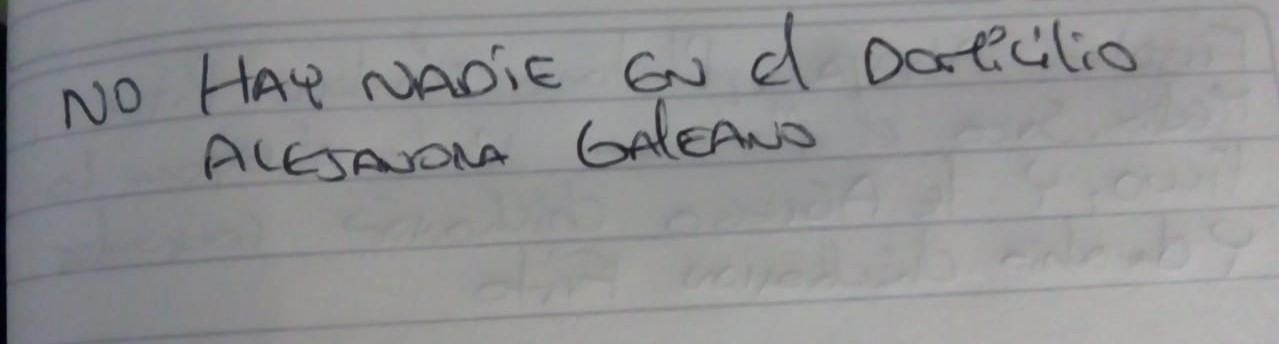 NO HAY NADIE EN el Domicilio
ALEJANDRA GALEANO